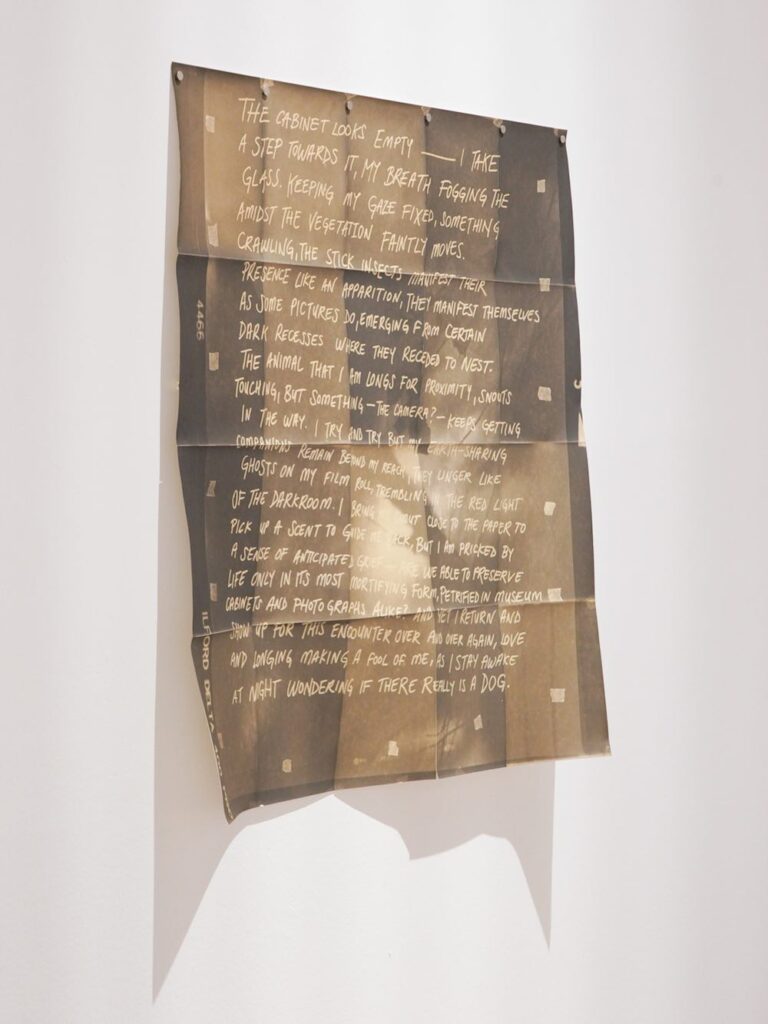 THE CABINET LOOKS EMPTY — I TAKE
A STEP TOWARDS IT, MY BREATH FOGGING THE
GLASS. KEEPING MY GAZE FIXED, SOMETHING
AMIDST THE VEGETATION FAINTLY MOVES.
CRAWLING, THE STICK INSECTS MANIFEST THEIR
PRESENCE LIKE AN APPARITION, THEY MANIFEST THEMSELVES
AS SOME PICTURES DO, EMERGING FROM CERTAIN
DARK RECESSES WHERE THEY RECEDED TO NEST.
THE ANIMAL THAT I AM LONGS FOR PROXIMITY, SNOUTS
TOUCHING, BUT SOMETHING — THE CAMERA? — KEEPS GETTING
IN THE WAY. I TRY AND TRY BUT MY EARTH-SHARING
COMPANIONS REMAIN BEYOND MY REACH, THEY LINGER LIKE
GHOSTS ON MY FILM ROLL, TREMBLING IN THE RED LIGHT
OF THE DARKROOM. I BRING SNOUT CLOSE TO THE PAPER TO
PICK UP A SCENT TO GUIDE ME BACK, BUT I AM PRICKED BY
A SENSE OF ANTICIPATED GRIEF — ARE WE ABLE TO PRESERVE
LIFE ONLY IN ITS MOST MORTIFYING FORM, PETRIFIED IN MUSEUM
CABINETS AND PHOTOGRAPHS ALIKE? AND YET I RETURN AND
SHOW UP FOR THIS ENCOUNTER OVER AND OVER AGAIN, LOVE
AND LONGING MAKING A FOOL OF ME, AS I STAY AWAKE
AT NIGHT WONDERING IF THERE REALLY IS A DOG.
4466
ILFORD DELTA
5